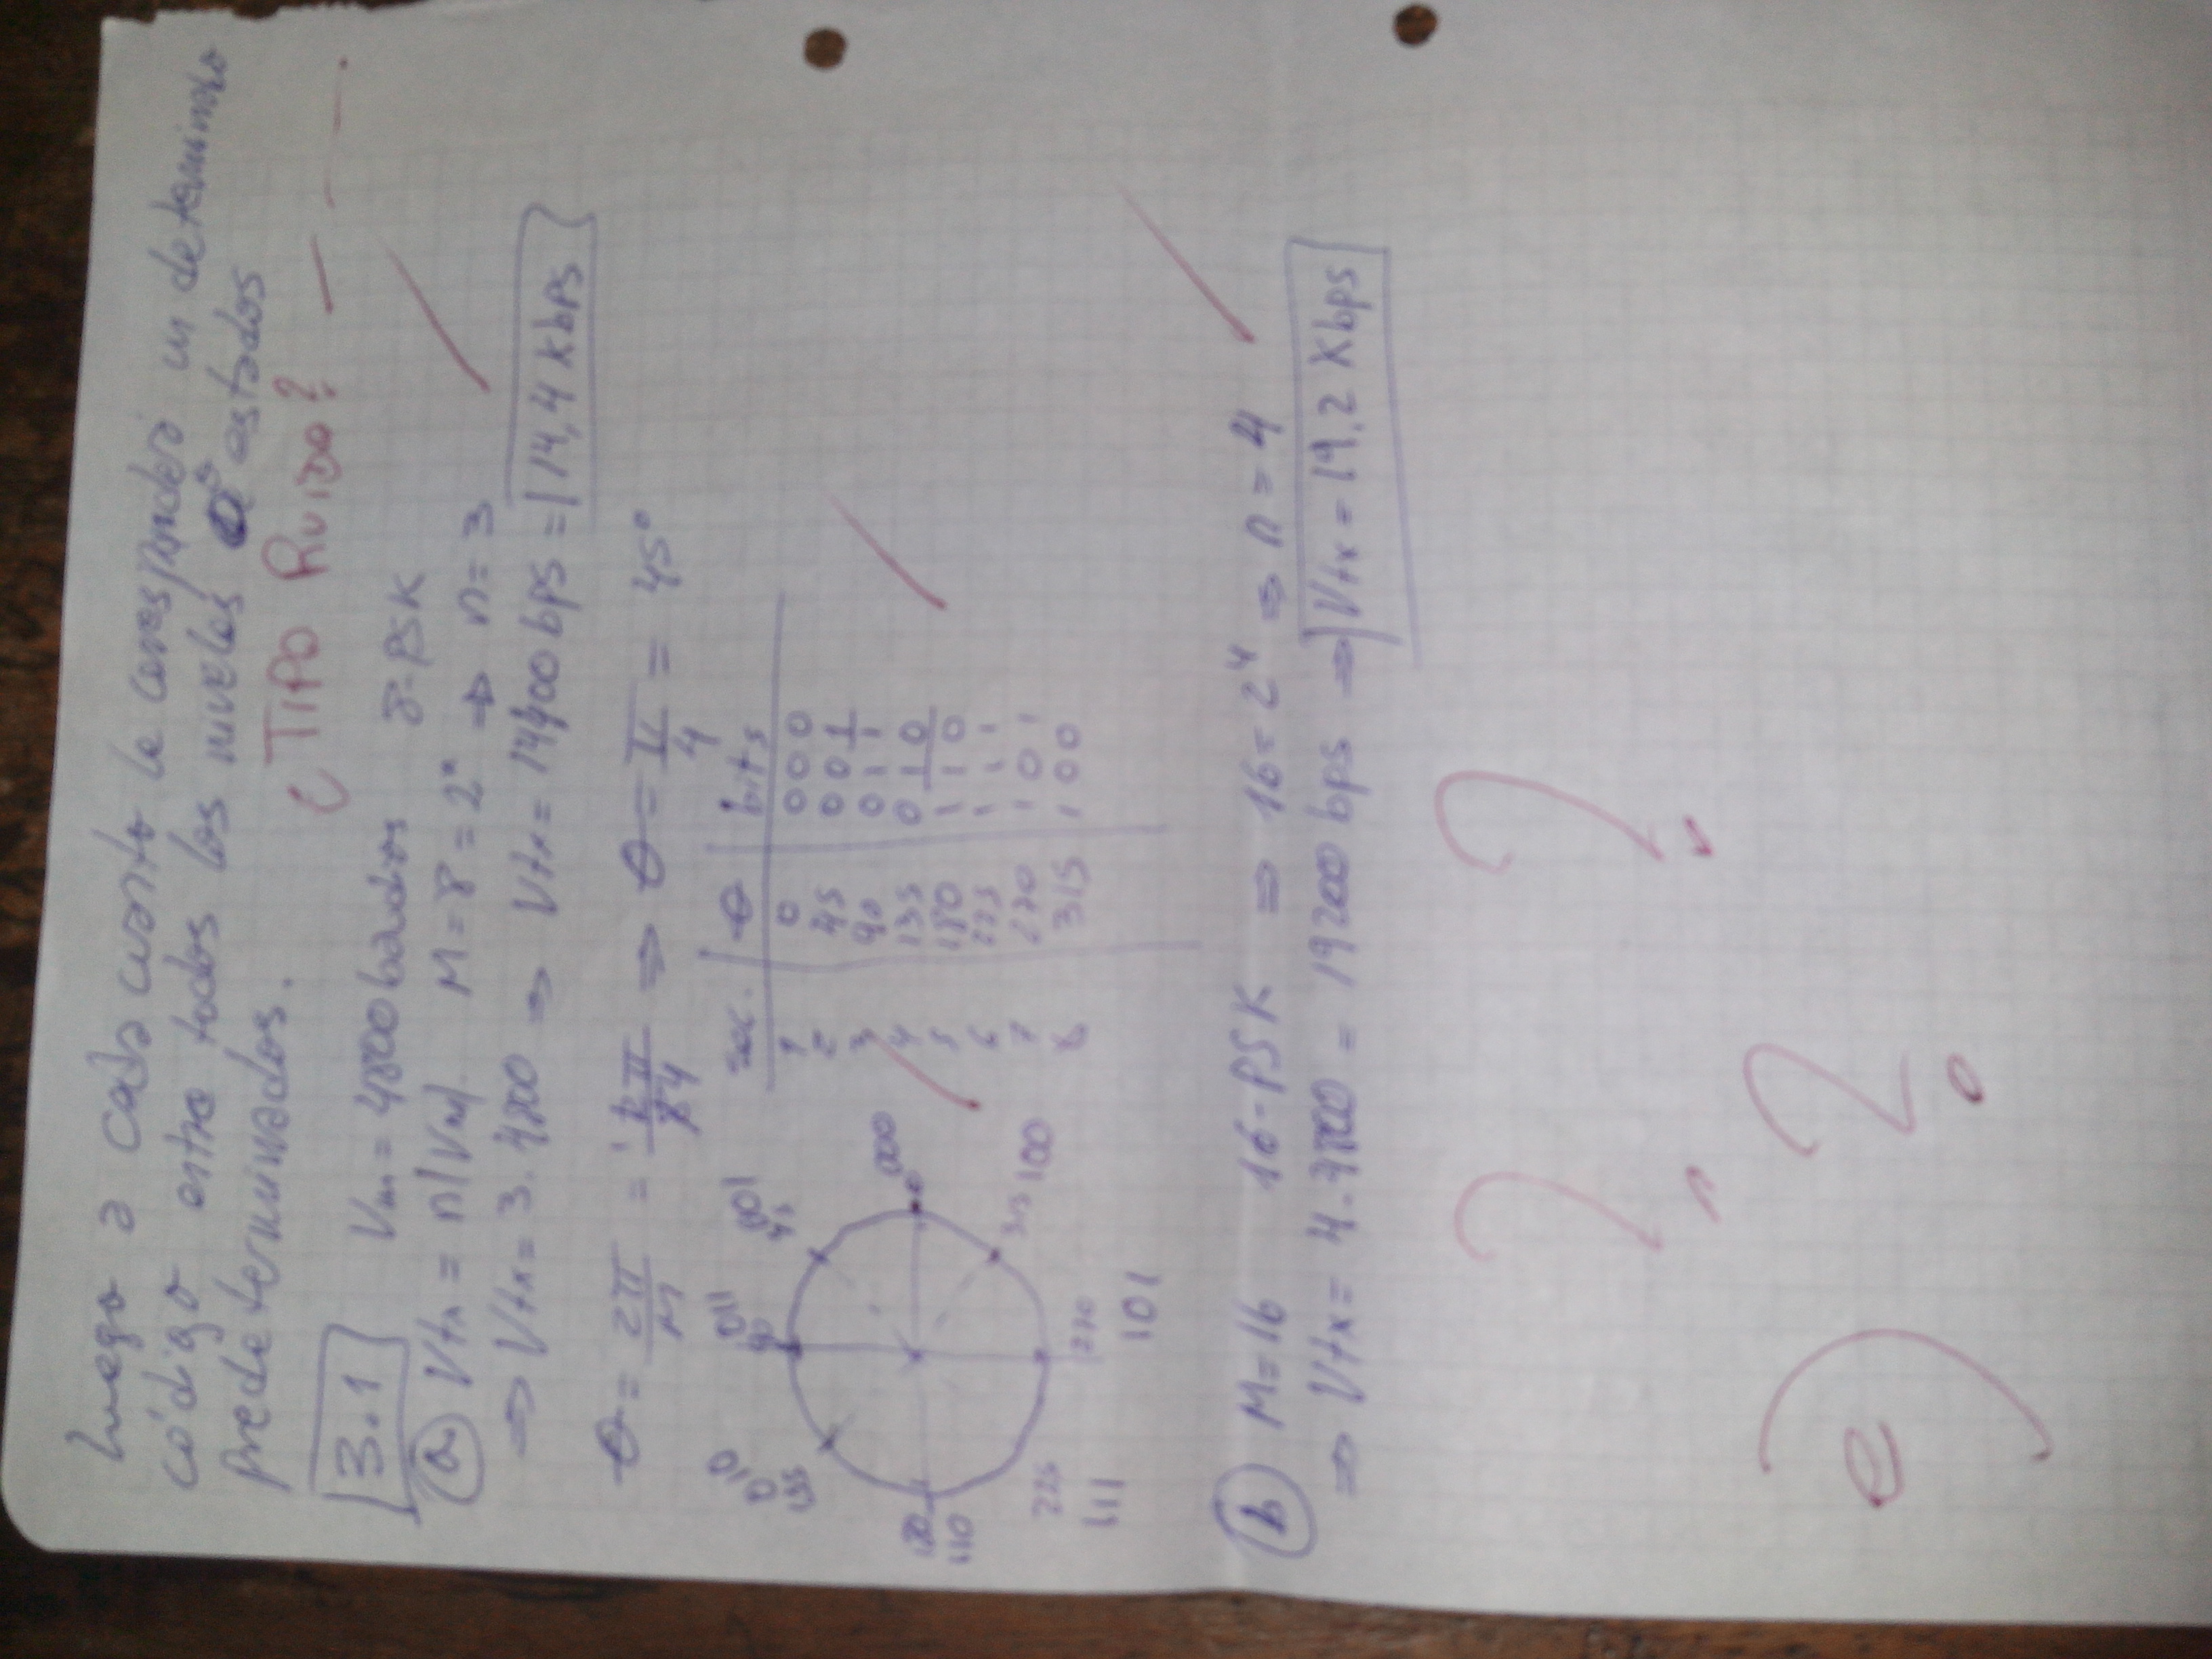 Luego a cada cuanto le corresponderá un determinado
código entre todos los niveles o estados
predeterminados.
¿TIPO RUIDO?
3.1 Vm = 4800 baudios 8-PSK
a Vtx = n|Vm| M = 8 = 2ⁿ ⇒ n = 3
⇒ Vtx = 3.4800 ⇒ Vtx = 14400 bps = 14,4 Kbps
θ = 2π/M = 2π/84 ⇒ θ = π/4 = 45°
010 135
011 90
001 45
000 0
180 110
225 111
270 101
315 100
sec. θ bits
1 0 000
2 45 001
3 90 011
4 135 010
5 180 110
6 225 111
7 270 101
8 315 100
b M=16 16-PSK ⇒ 16 = 2⁴ ⇒ n = 4
⇒ Vtx = 4.4800 = 19200 bps ⇒ Vtx = 19,2 Kbps
? ?
e) ?